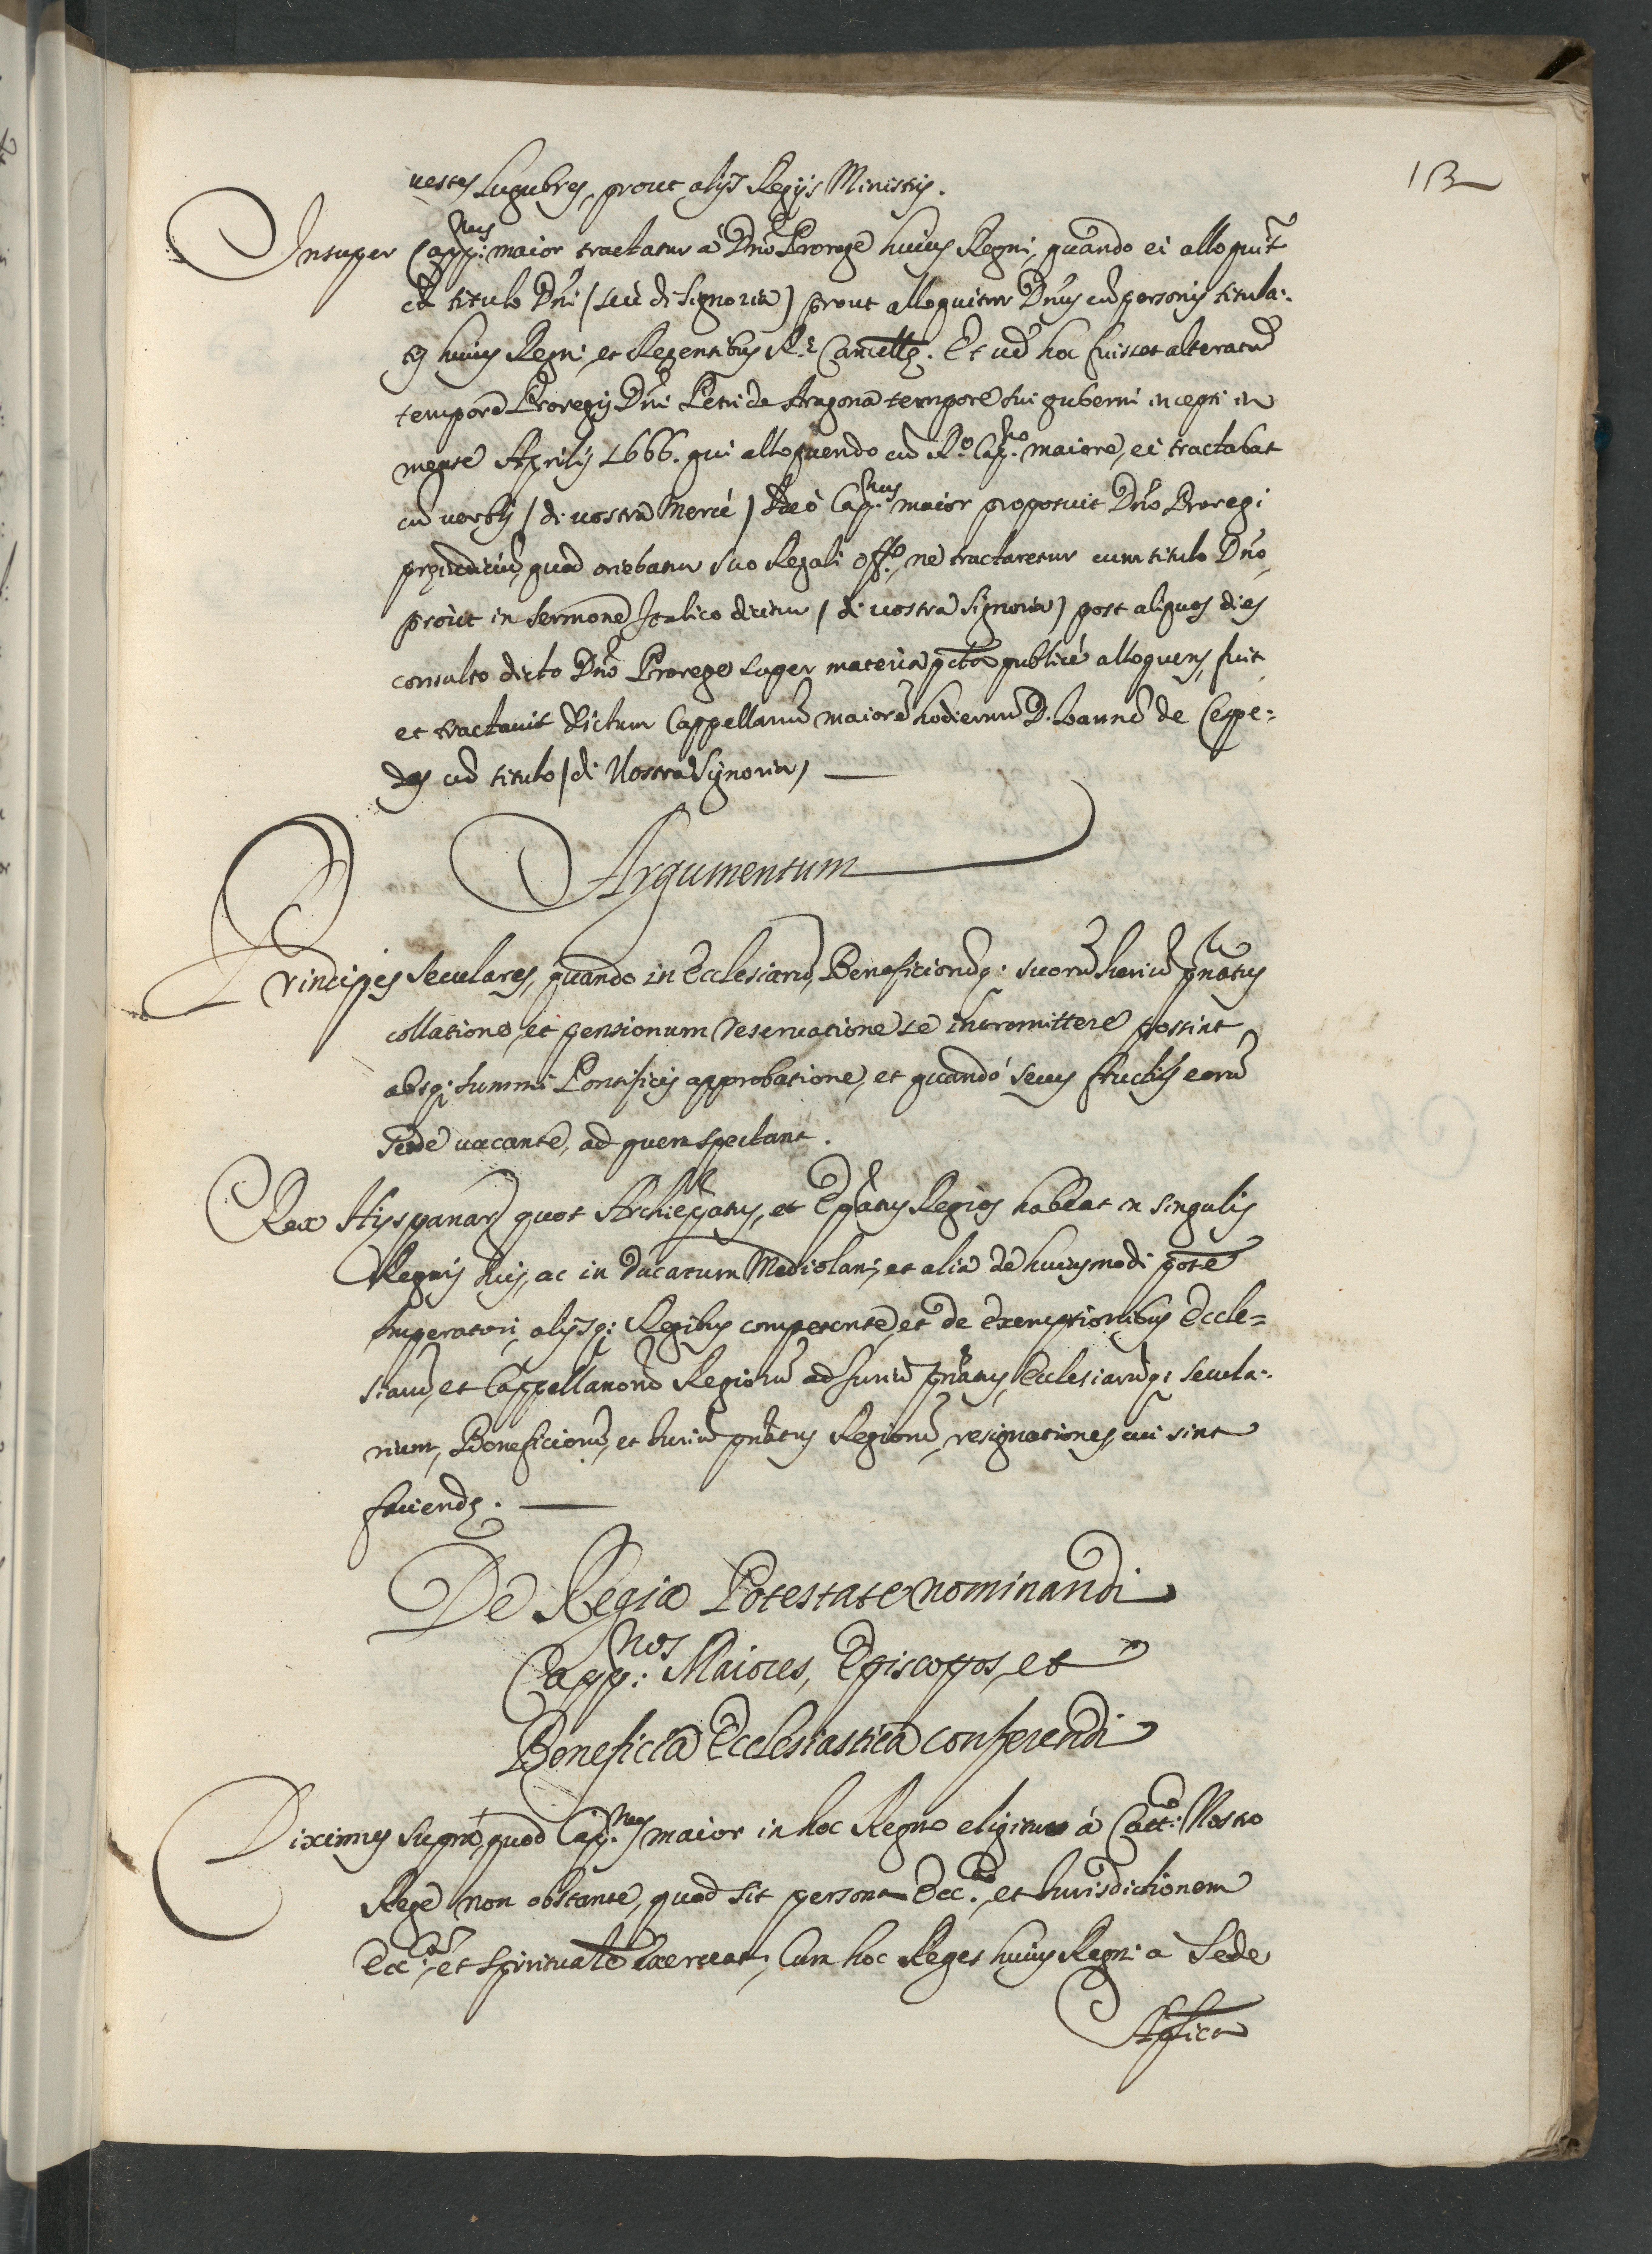 13
uestes Lugubres, prout alijs Regijs Ministris.
Insuper Capp:nus maior tractatur à Dño Prorege huius Regni, quando ei alloquit̃
cũ titulo Dñi (seu di Signoria) prout alloquitur Dñus cũ personis titula:
tis huius Regni, et Regentibus R.e Cancellę. Et ud̃ hoc fuisset alteratũ
tempore Proregis Dñi Petri de Aragona tempore sui guberni incepti in
mense Aprilis 1666. qui alloquendo cũ R.o Cap.no maiore, ei tractabat
cũ verbis (di vostra Mercé) Ideò Cap.nus maior proposuit Dño Proregi
pręiudiciũ, quod oriebatur suo Regali Off.o, ne tractaretur cum titulo Dño,
proùt in sermone Italico dicitur (di vostra Signoria) post aliquos dies
consulto dicto Dño Prorege super materia p̃cta publicè alloquens, fuit
et tractauit dictum Cappellanũ maiorẽ hodiernũ D. Ioannẽ de Cespe:
des cũ titulo (di Vostra Signoria)
Argumentum
Principes seculares, quando in Ecclesiarũ, Beneficiorũq: suorũ Iuriũ p̃natus
collatione, et pensionum reseruatione se intromittere possint
absq: summi Pontificis approbatione, et quandó secus fructus eorũ
sede vacante, ad quem spectant.
Rex Hyspaniarũ quot Archiep̃atus, et Ep̃atus Regios habeat in singulis
Regnis suis, ac in ducatum Mediolani, et alia de huiusmodi potẽ
Imperatori, alijsq: Regibus competente, et de exemptionibus Eccle=
siarũ, et Cappellanorũ Regiorũ ad Iuriũ p̃natus, Ecclesiarũq: secula:
rium, Beneficiorũ, et Iuriũ p̃natus Regiorũ, resignationes, cui sint
faciendę.
De Regia Potestate nominandi
Capp:nos Maiores, Episcopos, et
Beneficia Ecclesiastica conferendi
Diximus supra, quod Cap.nus maior in hoc Regno eligitur á Catt.co Nostro
Rege non obstante, quod sit persona Ecc.ca, et Iurisdictionem
Ecc.cam, et spiritualẽ exerceat; Cum hoc Reges huius Regni a Sede
Ap̃lica